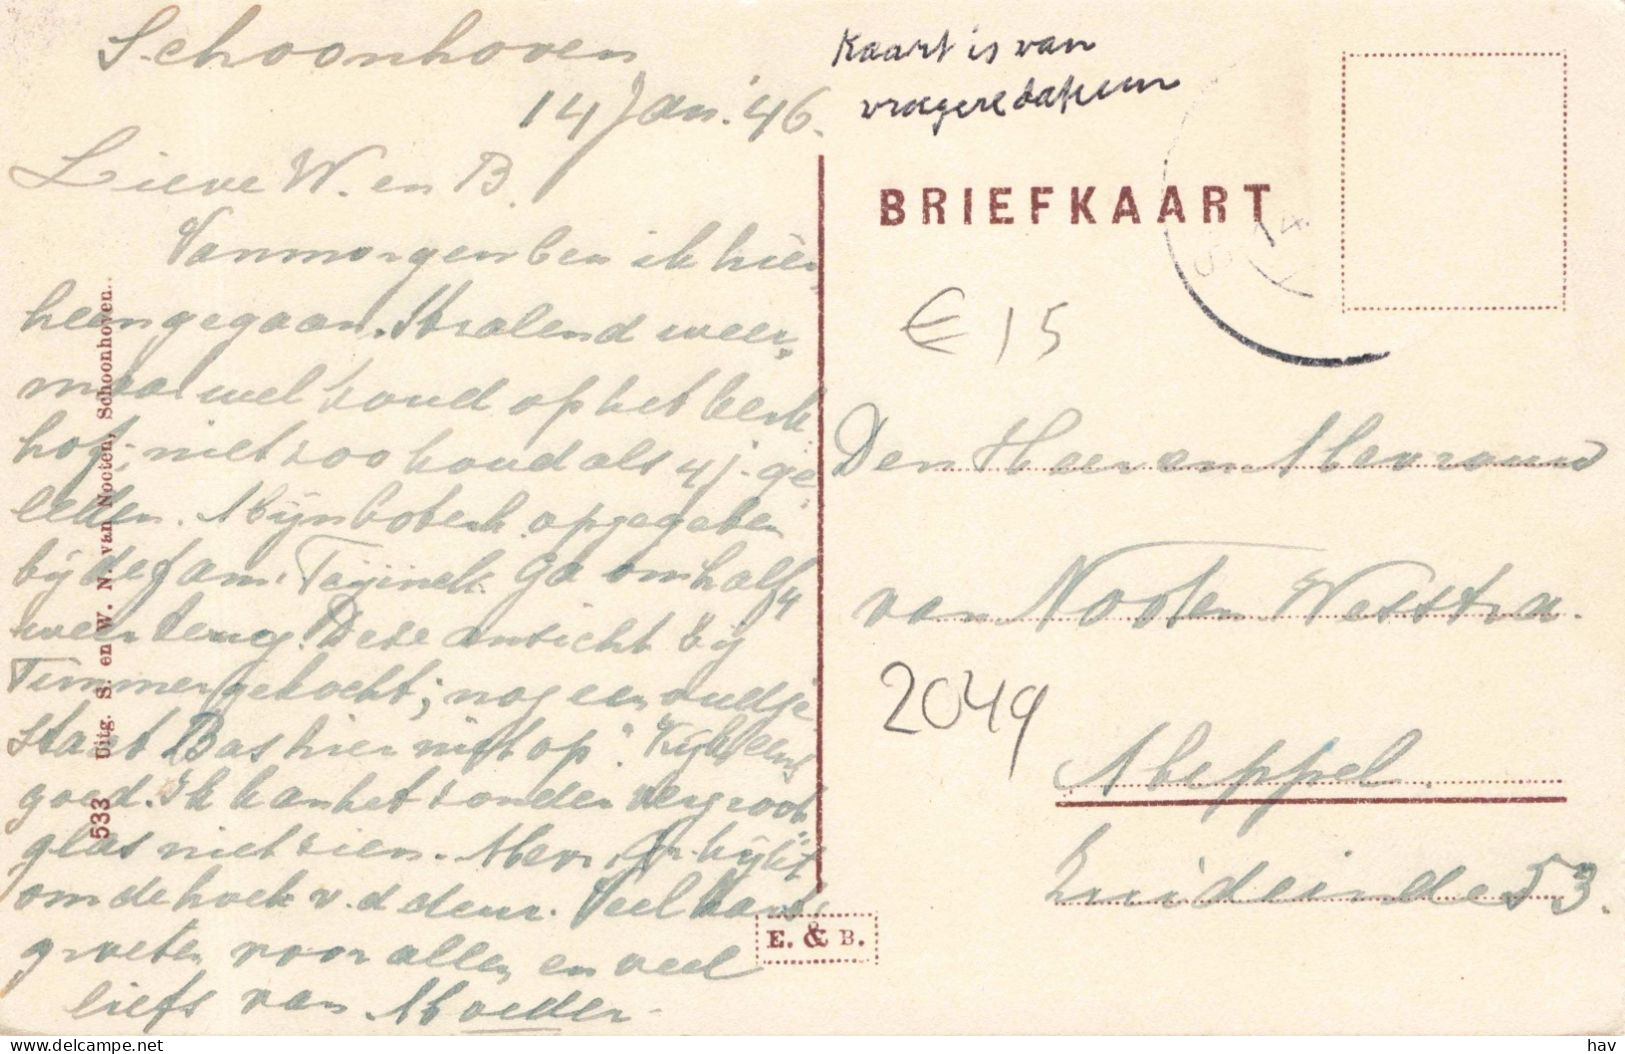 Schoonhoven
14 Jan. '46.
Lieve W. en B.
Vanmorgen ben ik hier
heengegaan. Stralend weer,
maar wel koud op het kerk
hof; niet zoo koud als 4 j. ge
leden. Mijn boberk opgegeven
bij de fam. Teijinck. Ga om half 4
weer terug. Deze ansicht bij
Timmer gekocht; nog een oudje
staat Bas hier niet op? Kijk eens
goed. Ik kan het zonder vergroot
glas niet zien. Mevr. Gr. kijkt
om de hoek v. d deur. Veel hart.
groeten voor allen en veel
liefs van Moeder.
533 Uitg. S. en W. N. van Nooten, Schoonhoven.
Kaart is van
vroegere datum
BRIEFKAART
€ 15
Den Heer en Mevrouw
van Nooten Westra.
2049
Meppel.
Zuideinde 53.
E. & B.
© delcampe.net
hav